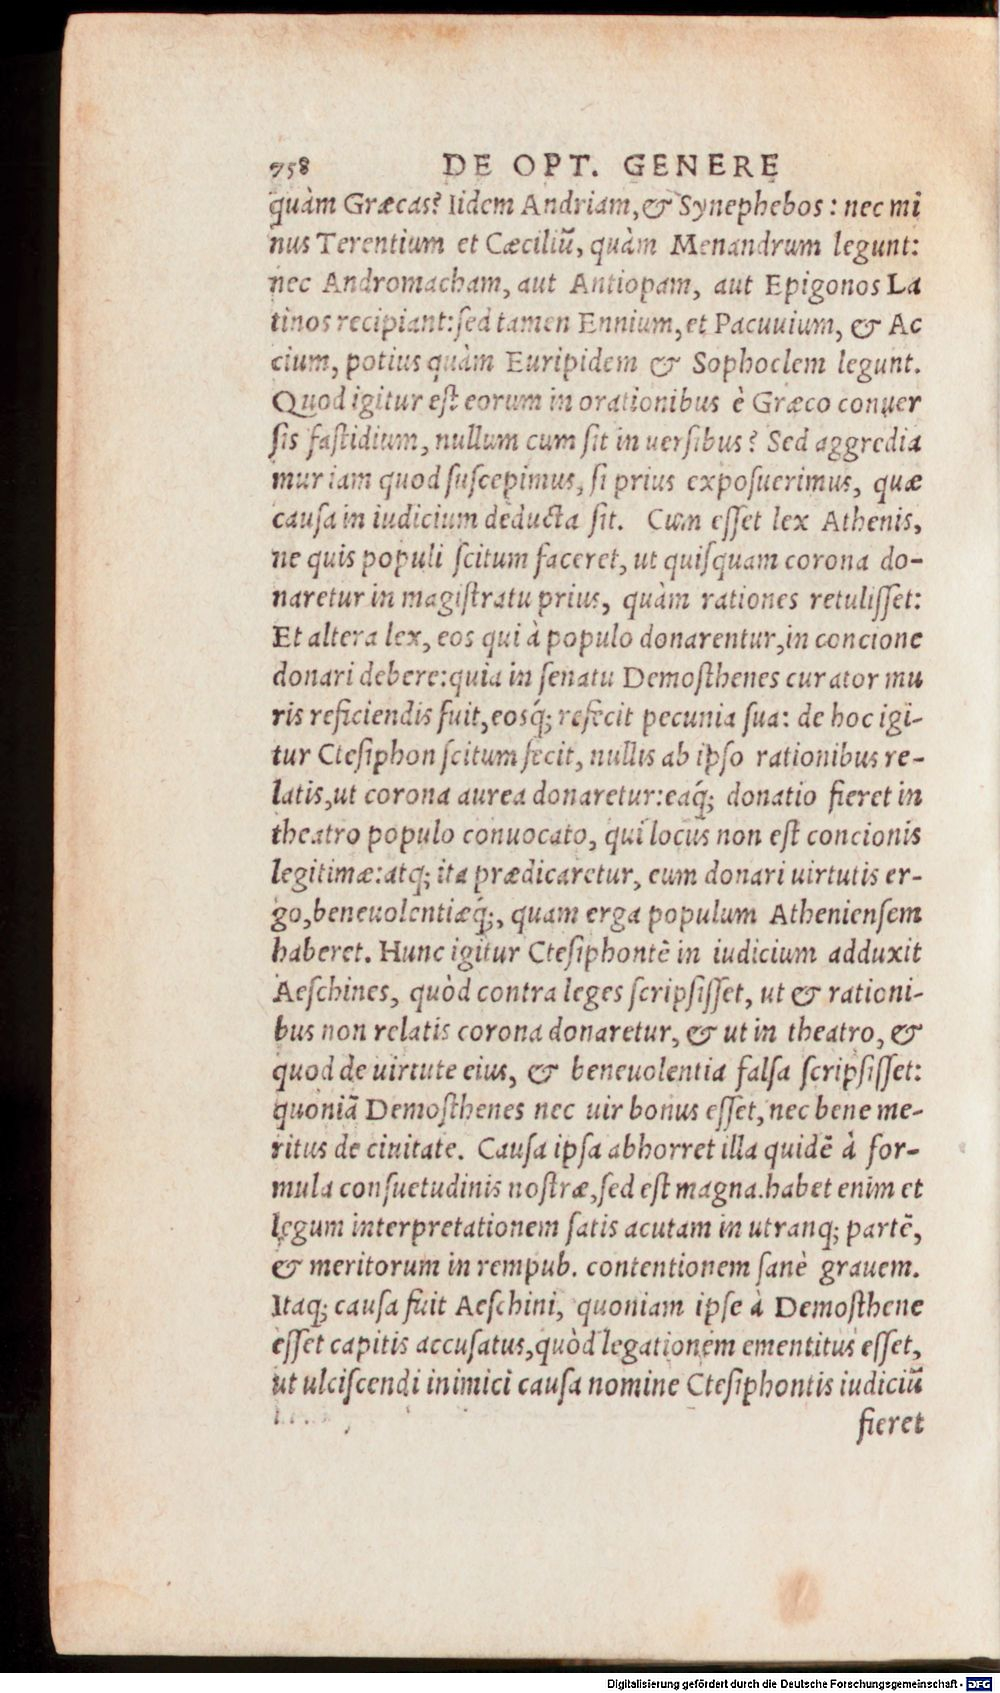 758 DE OPT. GENERE
quàm Græcas? Iidem Andriam, & Synephebos: nec mi
nus Terentium et Cæciliũ, quàm Menandrum legunt:
nec Andromacham, aut Antiopam, aut Epigonos La
tinos recipiant: sed tamen Ennium, et Pacuuium, & Ac
cium, potius quàm Euripidem & Sophoclem legunt.
Quod igitur est eorum in orationibus è Græco conuer
sis fastidium, nullum cum sit in uersibus? Sed aggredia
mur iam quod suscepimus, si prius exposuerimus, quæ
causa in iudicium deducta sit. Cum esset lex Athenis,
ne quis populi scitum faceret, ut quisquam corona do-
naretur in magistratu prius, quàm rationes retulisset:
Et altera lex, eos qui à populo donarentur, in concione
donari debere: quia in senatu Demosthenes curator mu
ris reficiendis fuit, eosq́; refecit pecunia sua: de hoc igi-
tur Ctesiphon scitum fecit, nullis ab ipso rationibus re-
latis, ut corona aurea donaretur: eaq́; donatio fieret in
theatro populo conuocato, qui locus non est concionis
legitimæ: atq; ita prædicaretur, eum donari uirtutis er-
go, beneuolentiæq́;, quam erga populum Atheniensem
haberet. Hunc igitur Ctesiphontẽ in iudicium adduxit
Aeschines, quòd contra leges scripsisset, ut & rationi-
bus non relatis corona donaretur, & ut in theatro, &
quod de uirtute eius, & beneuolentia falsa scripsisset:
quoniã Demosthenes nec uir bonus esset, nec bene me-
ritus de ciuitate. Causa ipsa abhorret illa quidẽ à for-
mula consuetudinis nostræ, sed est magna. habet enim et
legum interpretationem satis acutam in utranq; partẽ,
& meritorum in rempub. contentionem sanè grauem.
Itaq; causa fuit Aeschini, quoniam ipse à Demosthene
esset capitis accusatus, quòd legationem ementitus esset,
ut ulciscendi inimici causa nomine Ctesiphontis iudiciũ
fieret
Digitalisierung gefördert durch die Deutsche Forschungsgemeinschaft - DFG